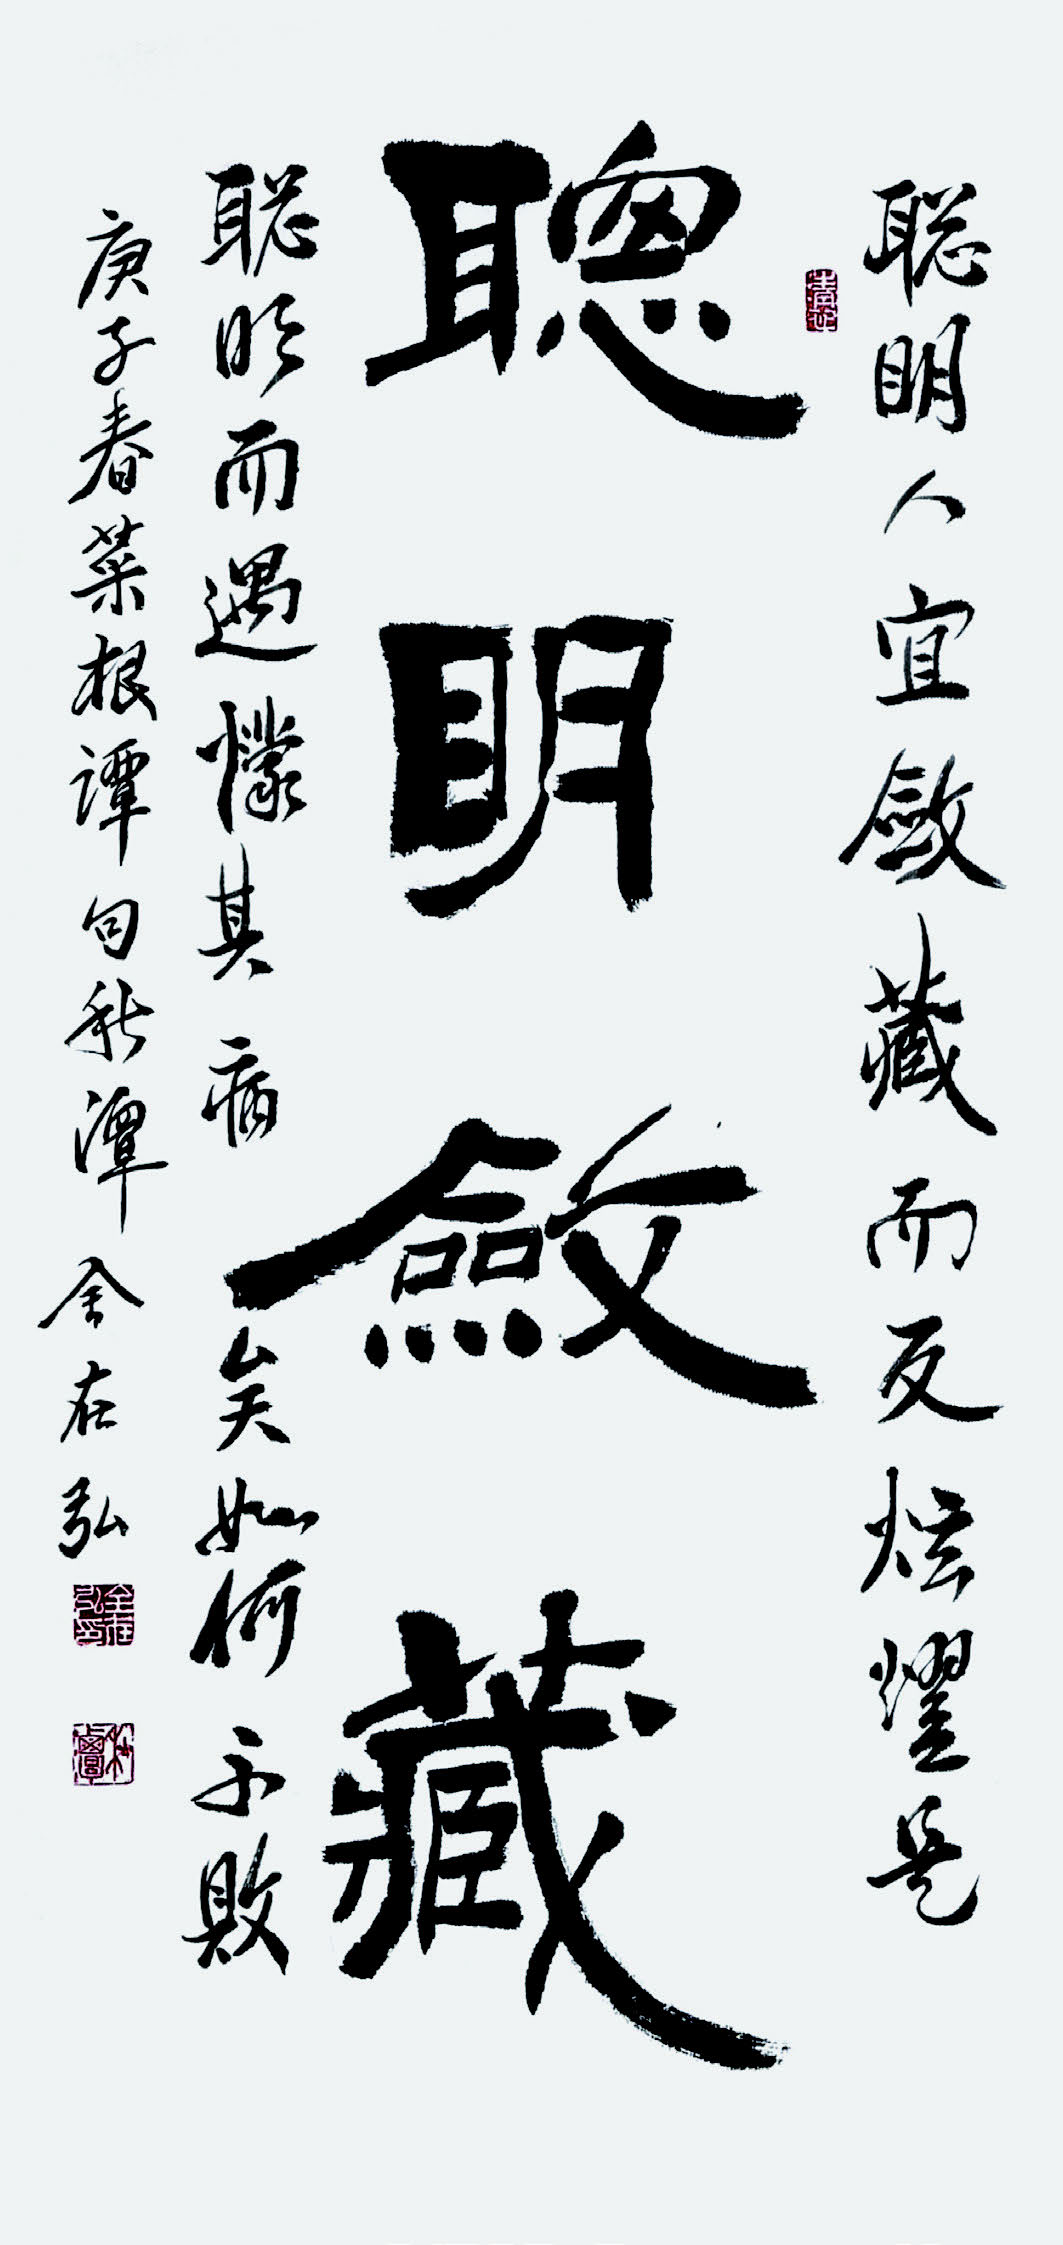 聰明人宜斂藏而反炫耀是
聰明斂藏
聰明而遇懞其病矣如何不敗
庚子春菜根譚句秋潭金在弘